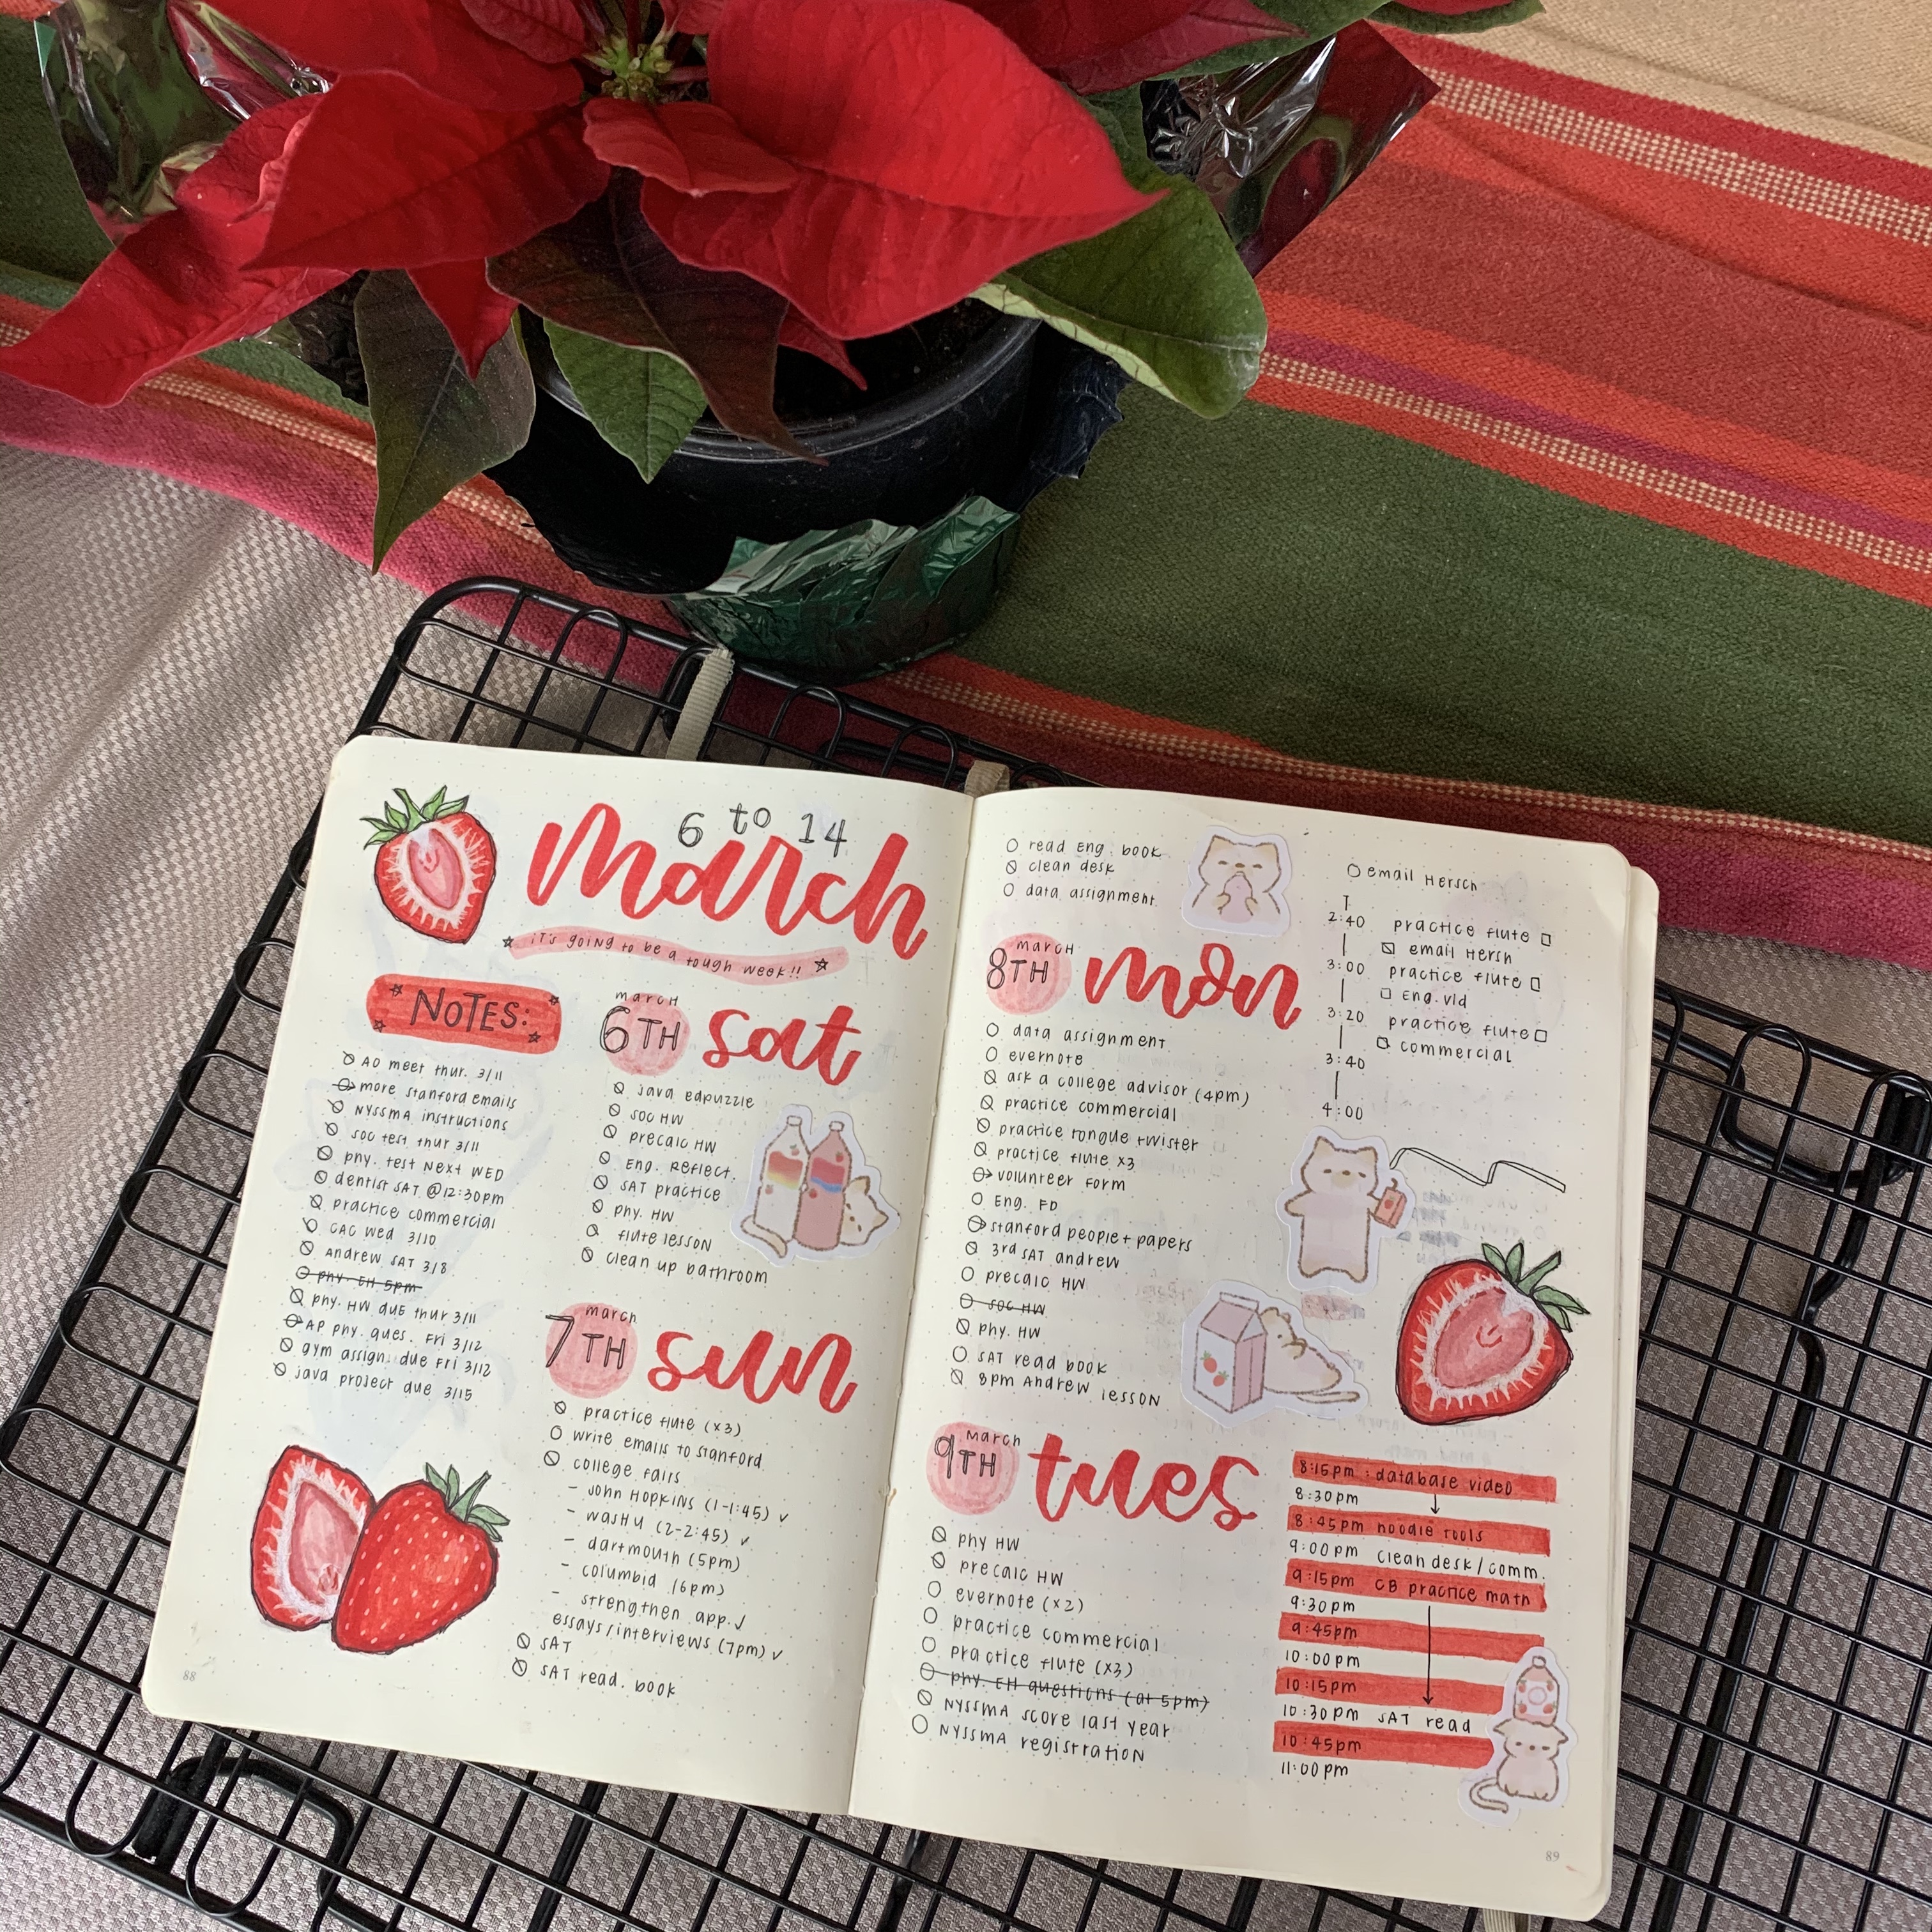 6 to 14
march
it's going to be a tough week!!
NOTES:
AO meet thur. 3/11
more stanford emails
NYSSMA instructions
soc test thur 3/11
phy. test next WED
dentist SAT @12:30pm
practice commercial
CAC wed 3/10
Andrew SAT 3/8
phy. EH 5pm
phy. HW due thur 3/11
AP phy. ques. Fri 3/12
gym assign. due Fri 3/12
java project due 3/15
88
march
6TH sat
java edpuzzle
soc HW
precalc HW
Eng. Reflect.
SAT practice
phy. HW
flute lesson
clean up bathroom
march
7TH sun
practice flute (x3)
write emails to stanford
college fairs
- John Hopkins (1-1:45) ✓
- washu (2-2:45) ✓
- dartmouth (5pm)
- columbia (6pm)
- strengthen app. ✓
essays/interviews (7pm) ✓
SAT
SAT read. book
read Eng. book
clean desk
data assignment
march
8TH mon
data assignment
evernote
ask a college advisor (4pm)
practice commercial
practice tongue twister
practice flute x3
volunteer form
Eng. FD
stanford people + papers
3rd SAT andrew
precalc HW
soc HW
phy. HW
SAT read book
8pm Andrew lesson
email Hersch
2:40 practice flute
email Hersh
3:00 practice flute
Eng. vid
3:20 practice flute
commercial
3:40
4:00
march
9TH tues
phy HW
precalc HW
evernote (x2)
practice commercial
practice flute (x3)
phy. EH questions (at 5pm)
NYSSMA score last year
NYSSMA registration
8:15pm : database video
8:30pm
8:45pm noodle tools
9:00pm clean desk/comm.
9:15pm CB practice math
9:30pm
9:45pm
10:00pm
10:15pm
10:30pm SAT read
10:45pm
11:00pm
89